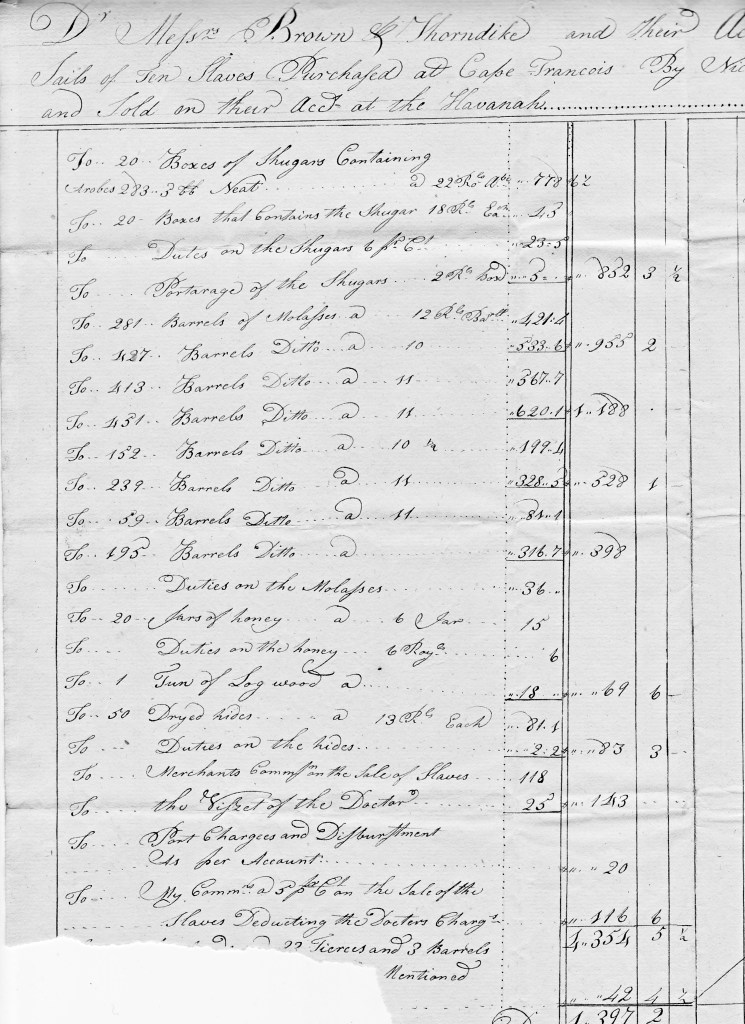 Dr Messrs Brown & Thorndike and their Ac
Sails of Ten Slaves Purchased at Cape Francois By Nic
and Sold on their Acct at the Havanah
To 20 Boxes of Shugars Containing
Arobes 283 3 lb Neat a 22 Rs 778 6 2
To 20 Boxes that Contains the Shugar 18 Rs Each 45
To Duties on the Shugars 6 pr Ct 23 5
To Portarage of the Shugars 2 Rs Box 5 852 3 ½
To 281 Barrels of Molasses a 12 Rs Barell 421 4
To 427 Barrels Ditto a 10 533 6 955 2
To 413 Barrels Ditto a 11 567 7
To 451 Barrels Ditto a 11 620 1 1 188
To 152 Barrels Ditto a 10 ½ 199 4
To 239 Barrels Ditto a 11 328 5 528 1
To 59 Barrels Ditto a 11 81 1
To 195 Barrels Ditto a 316 7 398
To Duties on the Molasses 36
To 20 Jars of honey a 6 Jar 15
To Duties on the honey 6 6
To 1 Tun of Log wood a 18 69 6
To 50 Dryed hides a 13 Rs Each 81 1
To Duties on the hides 2 2 83 3
To Merchants Commsn on the Sale of Slaves 118
To the Viszet of the Doctor 25 143
To Port Charges and Disburstment
As per Account 20
To My Commn a 5 pr Ct on the Sale of the
Slaves Deducting the Docters Charg 116 6
22 Tierces and 3 Barrels 4 354 5 ½
Mentioned
42 4 2
4 397 2